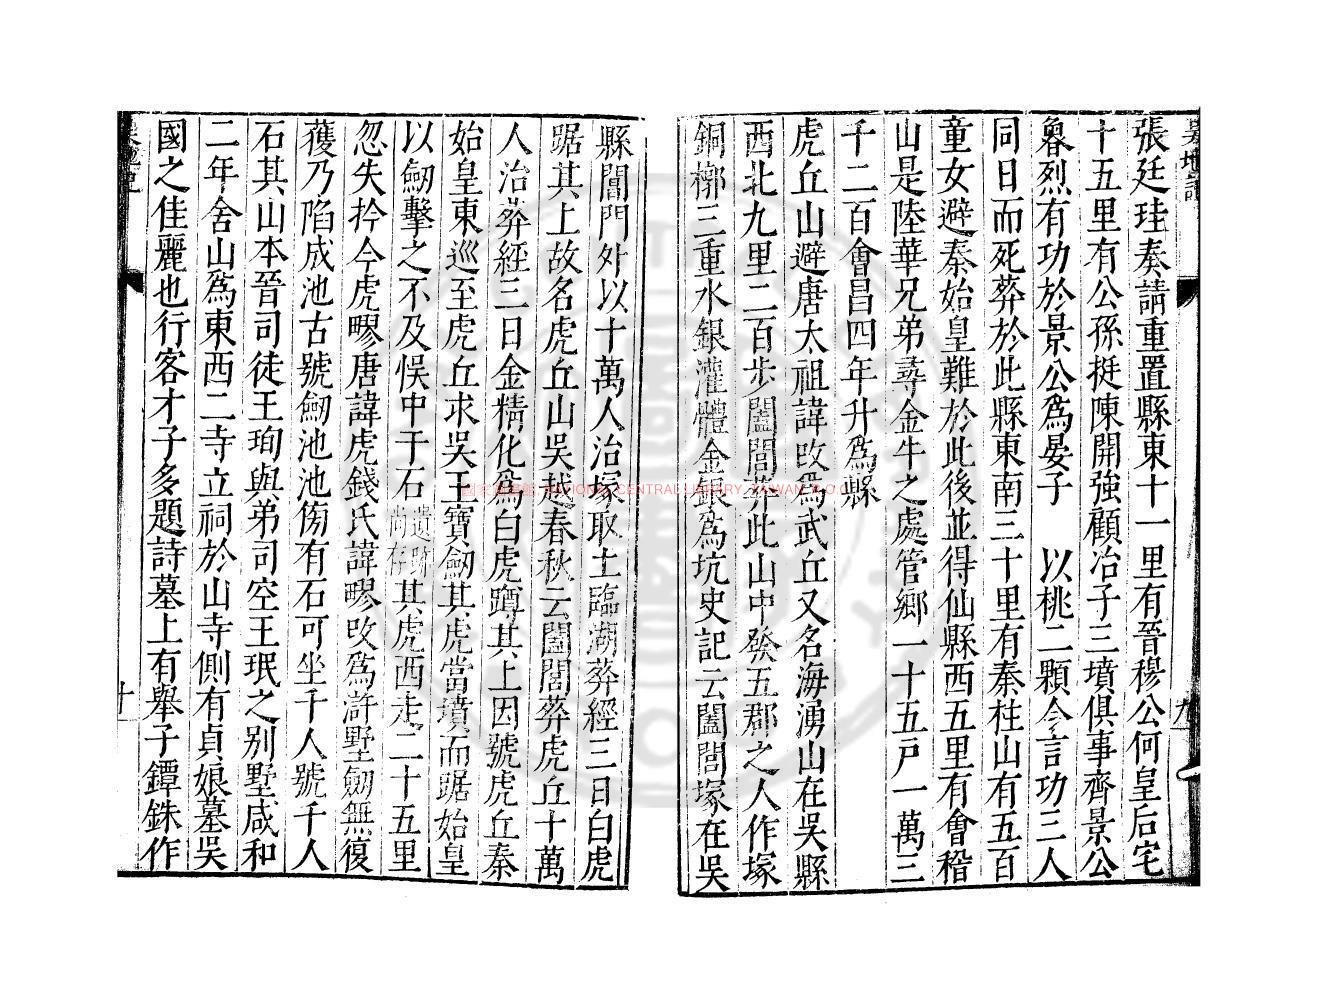 吳地記
張廷珪奏請重置縣東十一里有晉穆公何皇后宅
十五里有公孫挺陳開強顧冶子三墳俱事齊景公
魯烈有功於景公為晏子　以桃二顆令言功三人
同日而死葬於此縣東南三十里有秦柱山有五百
童女避秦始皇難於此後並得仙縣西五里有會稽
山是陸華兄弟尋金牛之處管鄉一十五戶一萬三
千二百會昌四年升為縣
虎丘山避唐太祖諱改為武丘又名海湧山在吳縣
西北九里二百步闔閭葬此山中發五郡之人作塚
銅槨三重水銀灌體金銀為坑史記云闔閭塚在吳
九
縣閶門外以十萬人治塚取土臨湖葬經三日白虎
踞其上故名虎丘山吳越春秋云闔閭葬虎丘十萬
人治葬經三日金精化為白虎蹲其上因號虎丘秦
始皇東巡至虎丘求吳王寶劒其虎當墳而踞始皇
以劒擊之不及悞中于石遺跡尚存其虎西走二十五里
忽失於今虎疁唐諱虎錢氏諱疁改為滸墅劒無復
獲乃陷成池古號劒池池傍有石可坐千人號千人
石其山本晉司徒王珣與弟司空王珉之别墅咸和
二年舍山為東西二寺立祠於山寺側有貞娘墓吳
國之佳麗也行客才子多題詩墓上有舉子鐔銖作
吳地記
十
國家圖書館, NATIONAL CENTRAL LIBRARY, TAIWAN, R.O.C